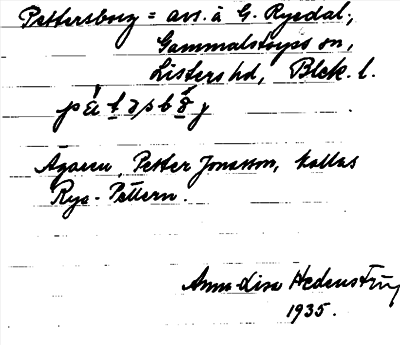 Pettersborg = avs. å G. Ryedal,
Gammalstorps sn,
Listers hd, Blek. l.
Ägaren, Petter Jonasson, kallas
Rye-Pettern.
Anna-Lisa Hedenström
1935.